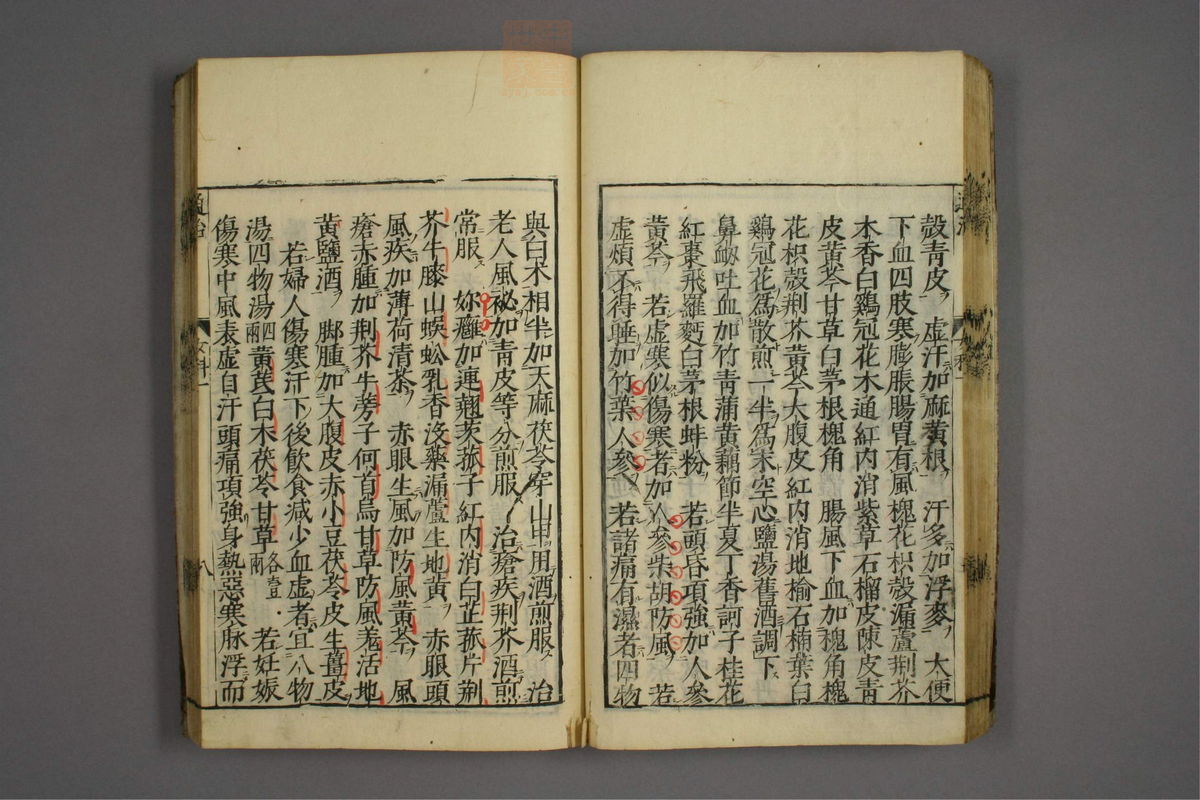 殼青皮 虛汗加麻黃根 汗多加浮麥 大便
下血四肢寒膨脹腸胃有風槐花枳殼漏蘆荆芥
木香白鷄冠花木通紅内消紫草石榴皮陳皮青
皮黃芩甘草白茅根槐角 腸風下血加槐角槐
花枳殼荆芥黃芩大腹皮紅内消地榆石楠葉白
鷄冠花爲散煎一半爲末空心鹽湯舊酒調下
鼻衂吐血加竹青蒲黃藕節半夏丁香訶子桂花
紅棗飛羅麪白茅根蚌粉 若頭昏項強加人參
黃芩 若虛寒似傷寒者加人參柴胡防風 若
虛煩不得睡加竹葉人參 若諸痛有濕者四物
與白术相半加天麻茯苓穿山甲用酒煎服 治
老人風祕加青皮等分煎服 治瘡疾荆芥酒煎
常服 妳癰加連翹芙蓉子紅内消白芷菰片荆
芥牛膝山蜈蚣乳香沒藥漏蘆生地黃 赤眼頭
風疾加薄荷清茶 赤眼生風加防風黃芩 風
瘡赤腫加荆芥牛蒡子何首烏甘草防風羗活地
黃鹽酒 脚腫加大腹皮赤小豆茯苓皮生薑皮
若婦人傷寒汗下後飲食減少血虛者宜八物
湯四物湯四兩黃芪白术茯苓甘草各壹兩 若妊娠
傷寒中風表虛自汗頭痛項強身熱惡寒脉浮而
通治
女科一
八